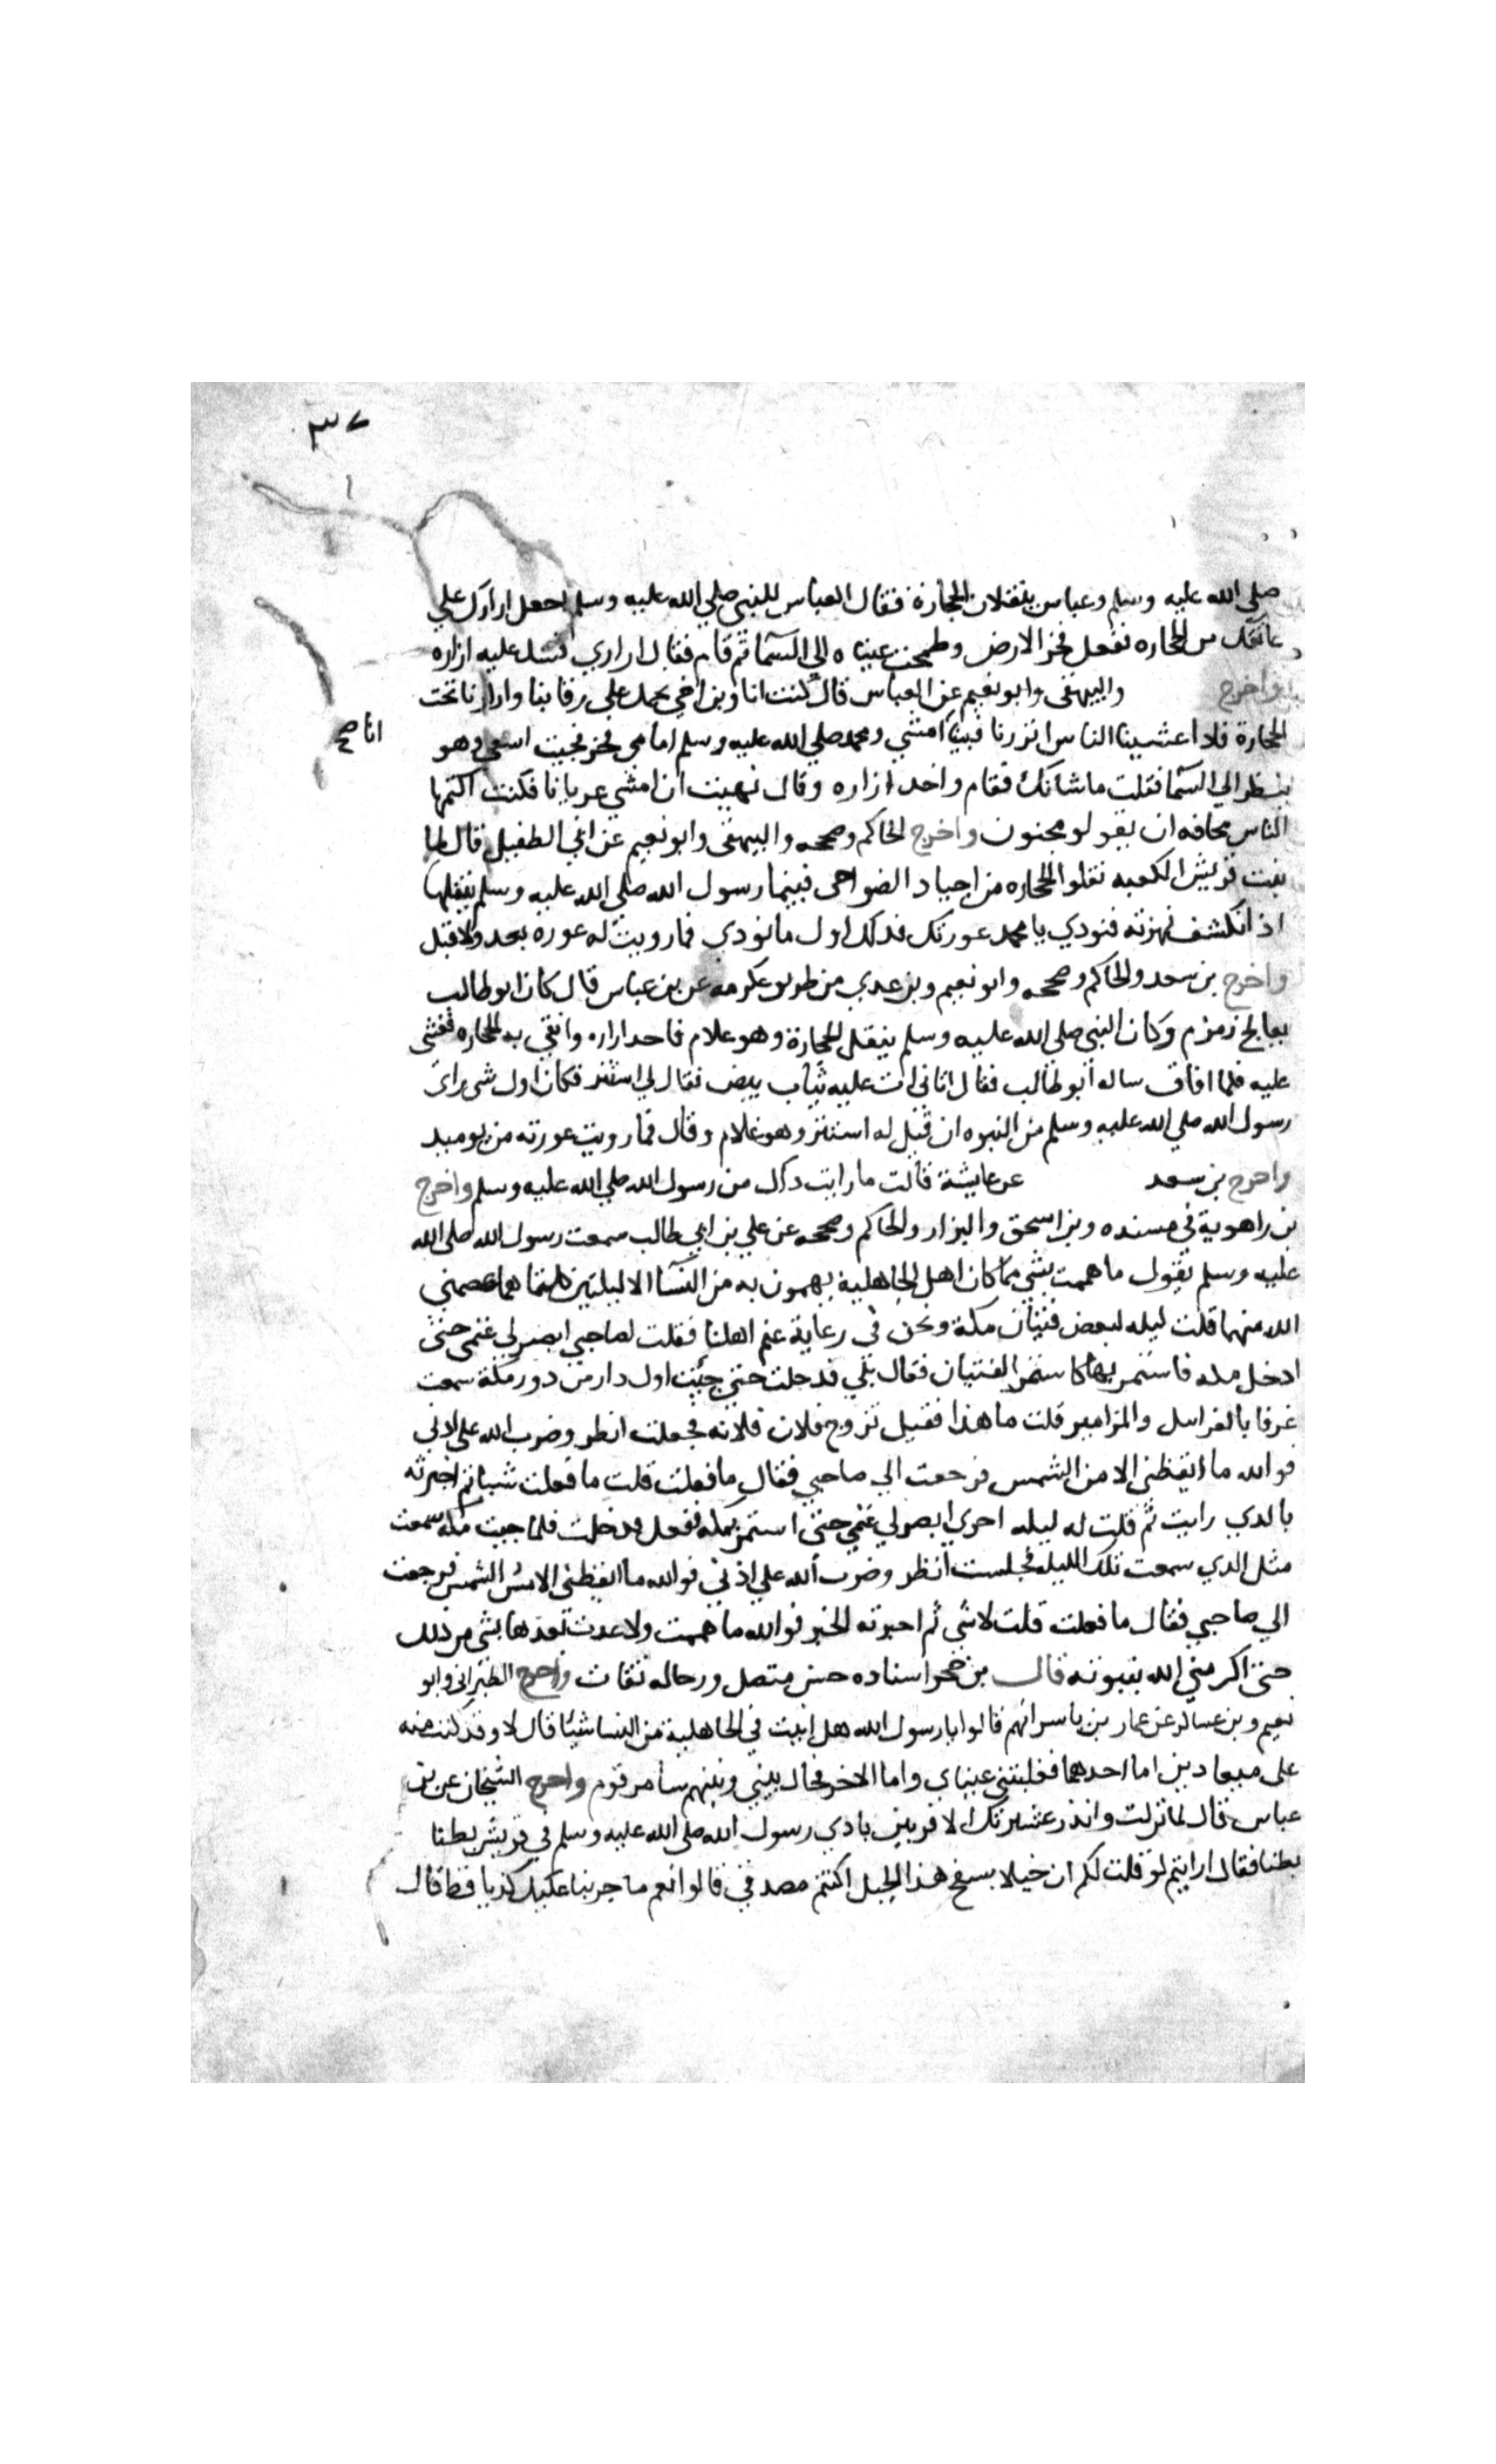 ٣٧
صلى الله عليه وسلم وعباس ينقلان الحجارة فقال العباس للنبي صلى الله عليه وسلم اجعل ازارك علي
عاتقك من الحجاره ففعل فخر الارض وطمحت عيناه الي السما ثم قام فقال ازاري فشد عليه ازاره
واخرج والبيهقي وابو نعيم عن العباس قال كنت انا وبن اخي نحمل علي رقابنا وازارنا تحت
الحجارة فاذا غشينا الناس اتزرنا فبينا امشي ومحمد صلي الله عليه وسلم امامي فخر فجيت اسعي وهو
انا صح
ينظر الي السما فقلت ما شانك فقام واخد ازاره وقال نهيت ان امشي عريانا فكنت اكتمها
الناس مخافه ان يقولو مجنون واخرج الحاكم وصححه والبيهقي وابو نعيم عن ابي الطفيل قال لما
بنت قريش الكعبه نقلوا الحجاره من اجياد الضواحي فبينما رسول الله صلى الله عليه وسلم ينقلها
اذ انكشف نمرته فنودي يا محمد عورتك فذلك اول ما نودي فما رويت له عوره بعد ولا قبل
واخرج بن سعد والحاكم وصححه وابو نعيم وبن عدي من طريق عكرمه عن بن عباس قال كان ابو طالب
يعالج زمزم وكان النبي صلى الله عليه وسلم ينقل الحجارة وهو غلام فاحد ازاره واتقي به الحجاره فغشي
عليه فلما افاق ساله ابو طالب فقال اتاني ات عليه ثياب بيض فقال لي استتر فكان اول شي راي
رسول الله صلي الله عليه وسلم من النبوه ان قيل له استتر وهو غلام وقال فما رويت عورته من يوميد
واخرج بن سعد عن عايشة قالت ما رايت داك من رسول الله صلي الله عليه وسلم واخرج
بن راهوية في مسنده وبن اسحق والبزار والحاكم وصححه عن علي بن ابي طالب سمعت رسول الله صلى الله
عليه وسلم يقول ما هممت بشي مما كان اهل الجاهلية يهمون به من النسا الا ليلتين كلتاهما عصمني
الله منهما قلت ليله لبعض فتيان مكة ونحن في رعاية غنم اهلنا فقلت لصاحبي ابصر لي غنمي حتى
ادخل مكه فاسمر بها كما يسمر الفتيان فقال بلي فدخلت حتى جئت اول دار من دور مكة سمعت
عزفا بالغرابيل والمزامير قلت ما هذا فقيل تزوج فلان فلانه فجعلت انظر وضرب الله علي اذني
فوالله ما ايقظني الا مس الشمس فرجعت الي صاحبي فقال ما فعلت قلت ما فعلت شيا ثم اخبرته
بالدي رايت ثم قلت له ليله اخري ابصر لي غنمي حتى اسمر بمكه ففعل فدخلت فلما جيت مكه سمعت
مثل الدي سمعت تلك الليله فجلست انظر وضرب الله علي اذني فوالله ما ايقظني الا مس الشمس فرجعت
الي صاحبي فقال ما فعلت قلت لا شي ثم اخبرته الخبر فوالله ما هممت ولا عدت بعدها بشي من ذلك
حتى اكرمني الله بنبوته قال بن حجر اسناده حسن متصل ورجاله ثقات واخرج الطبراني وابو
نعيم وبن عساكر عن عمار بن ياسر انهم قالوا يا رسول الله هل اتيت في الجاهلية من النسا شيئا قال لا وقد كنت منه
على ميعادين اما احدهما فغلبتني عيناي واما الاخر فحال بيني وبينهم سامر قوم واخرج الشيخان عن بن
عباس قال لما نزلت وانذر عشيرتك الاقربين نادي رسول الله صلى الله عليه وسلم في قريش بطنا
بطنا فقال ارايتم لو قلت لكم ان خيلا بسفح هذا الجبل اكنتم مصدقي قالوا نعم ما جربنا عليك كذبا قط قال